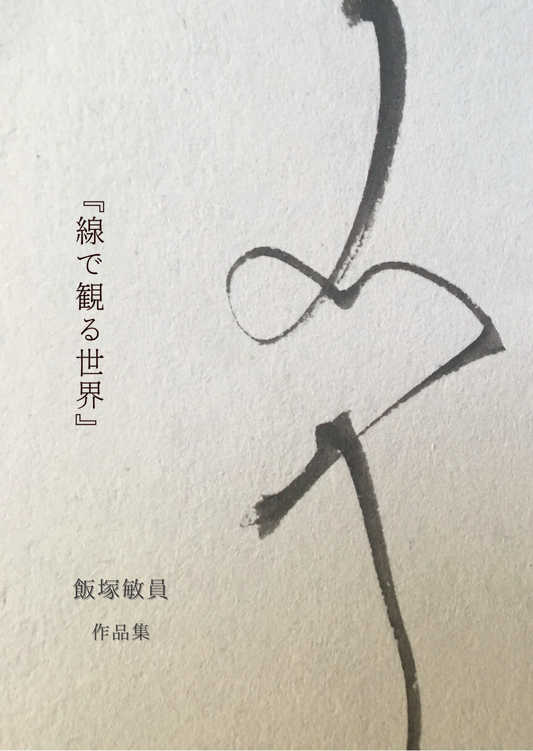 『線で観る世界』
飯塚敏員
作品集